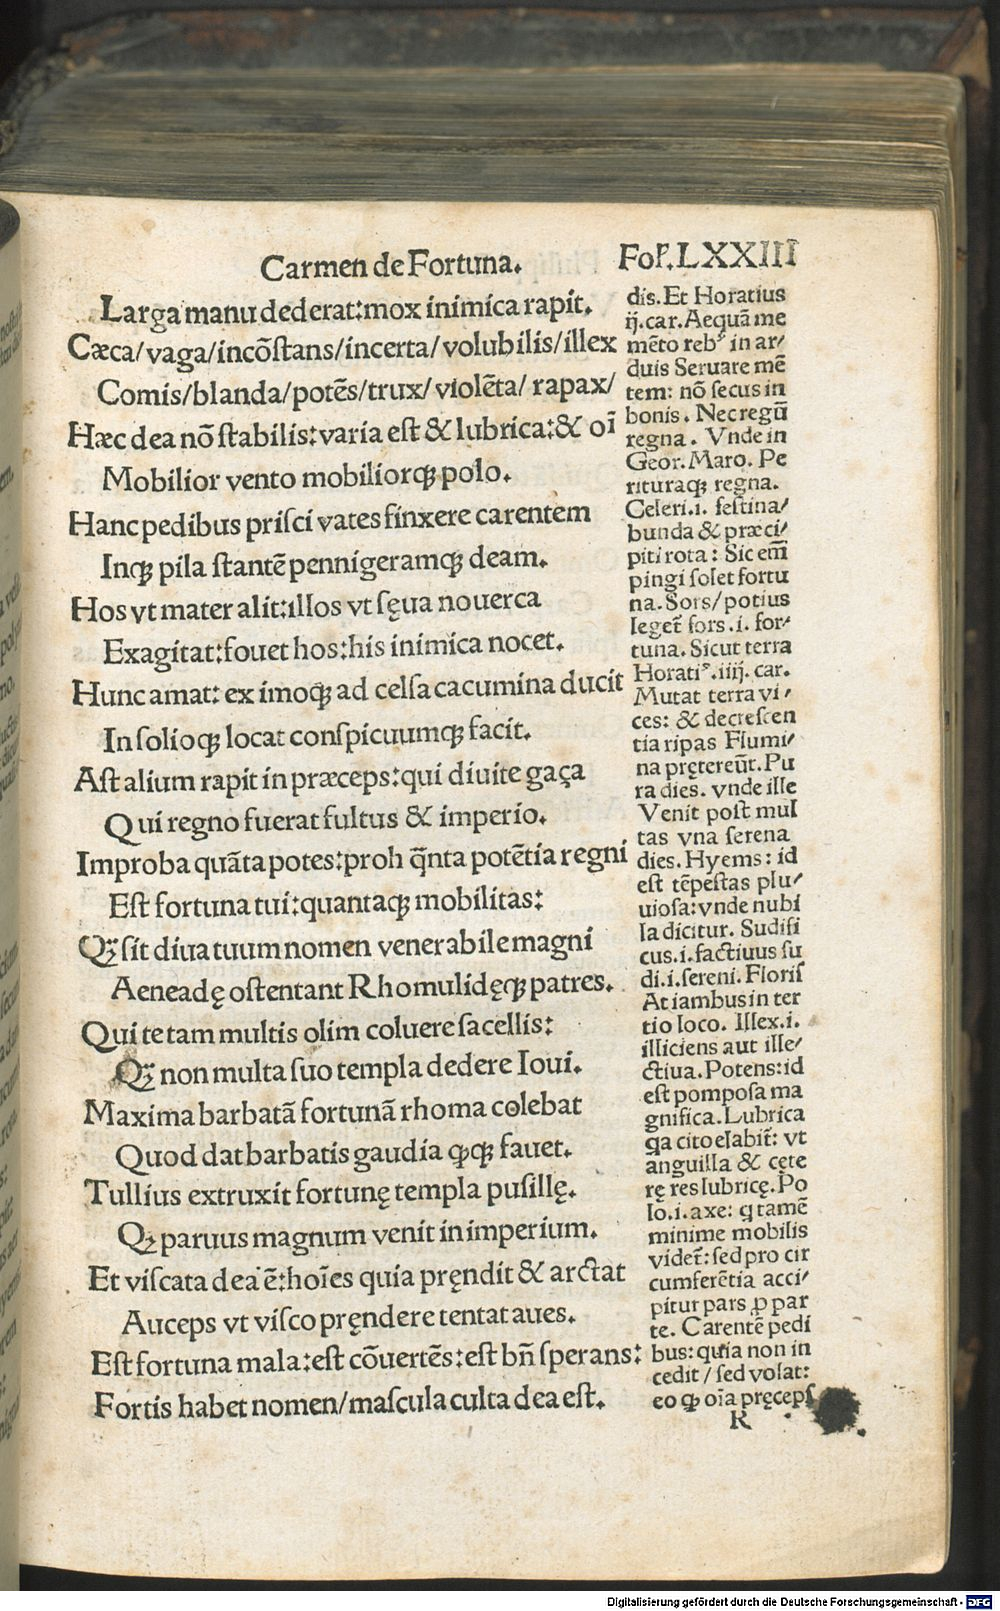 Carmen de Fortuna. Foł.LXXIII
Larga manu dederat:mox inimica rapit.
Cæca/vaga/incōſtans/incerta/volubilis/illex
Comis/blanda/potēs/trux/violēta/rapax/
Hæc dea nō ſtabilis:varia eſt & lubrica:& oī
Mobilior vento mobiliorꝙ polo.
Hanc pedibus priſci vates finxere carentem
Inꝙ pila ſtantē pennigeramꝙ deam.
Hos vt mater alit:illos vt ſęua nouerca
Exagitat:fouet hos:his inimica nocet.
Hunc amat: ex imoꝙ ad celſa cacumina ducit
In ſolioꝙ locat conſpicuumꝙ facit.
Aſt alium rapit in præceps:qui diuite gaça
Qui regno fuerat fultus & imperio.
Improba quāta potes:proh q̄nta potētia regni
Eſt fortuna tui:quantaꝙ mobilitas:
Qꝫ ſit diua tuum nomen venerabile magni
Aeneadę oſtentant Rhomulidęꝙ patres.
Qui te tam multis olim coluere ſacellis:
Qꝫ non multa ſuo templa dedere Ioui.
Maxima barbatā fortunā rhoma colebat
Quod dat barbatis gaudia ꝙꝙ fauet.
Tullius extruxit fortunę templa puſillę.
Qꝫ paruus magnum venit in imperium.
Et viſcata dea ē:hoīes quia pręndit & arctat
Auceps vt viſco pręndere tentat aues.
Eſt fortuna mala:eſt cōuertēs:eſt bn̄ ſperans:
Fortis habet nomen/maſcula culta dea eſt.
dis. Et Horatius
ij. car. Aequā me
mēto rebꝰ in ar/
duis Seruare mē
tem: nō ſecus in
bonis. Nec regū
regna. Vnde in
Geor. Maro. Pe
rituraꝙ regna.
Celeri.i. feſtina/
bunda & præci/
piti rota: Sic em̄
pingi ſolet fortu
na. Sors/potius
leget̄ ſors.i. for/
tuna. Sicut terra
Horatiꝰ.iiij. car.
Mutat terra vi/
ces: & decreſcen
tia ripas Flumi/
na pręTereūt. Pu
ra dies. vnde ille
Venit poſt mul
tas vna ſerena
dies. Hyems: id
eſt tēpeſtas plu/
uioſa: vnde nubi
la dicitur. Sudifi
cus.i. factiuus ſu
di.i. ſereni. Floriſ
At iambus in ter
tio loco. Illex.i.
illiciens aut ille/
ctiua. Potens: id
eſt pompoſa ma
gnifica. Lubrica
q̇a cito elabit̄: vt
anguilla & cęte
rę res lubricę. Po
lo.i. axe: q̇ tamē
minime mobilis
videt̄: ſed pro cir
cumferētia acci/
pitur pars ꝓ par
te. Carentē pedi
bus: quia non in
cedit / ſed volat:
eo ꝙ oīa pręcepſ
R
Digitalisierung gefördert durch die Deutsche Forschungsgemeinschaft - DFG